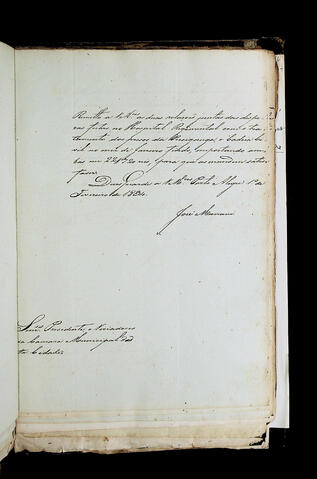 Remetto a V.S.as as duas relações juntas das despe-
zas feitas no Hospital Regimental com o tra-
tamento dos presos da e Cadeia Ci-
vil no mez de Janeiro findo, importando am-
bas em reis, para que as mandem satis-
fazer.
Deus Guarde a V.S.as Porto Alegre 1º de
Fevereiro de 1834.
José Marianno
Snr.es Presidente, e Vereadores
da Camara Municipal des-
ta Cidade